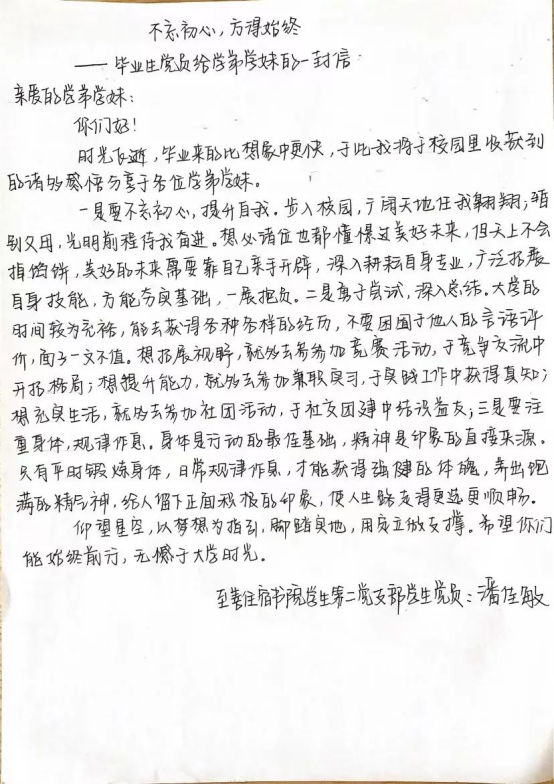 不忘初心,方得始终
——毕业生党员给学弟学妹的一封信
亲爱的学弟学妹:
你们好!
时光飞逝,毕业来的比想象中更快,于此我将于校园里收获到
的诸多感悟分享于各位学弟学妹。
一是要不忘初心,提升自我。步入校园,广阔天地任我翱翔;踏
别父母,光明前程待我奋进。想必诸位也都憧憬过美好未来,但天上不会
掉馅饼,美好的未来需要靠自己亲手开辟,深入耕耘自身专业,广泛拓展
自身技能,方能夯实基础,一展抱负。二是勇于尝试,深入总结。大学的
时间较为充裕,能去获得各种各样的经历,不要困囿于他人的言语评
价,面子一文不值。想拓展视野,就多去参加竞赛活动,于竞争交流中
开拓格局;想提升能力,就多去参加兼职实习,于实践工作中获得真知;
想充实生活,就多去参加社团活动,于社交团建中结识益友;三是要注
重身体,规律作息。身体是行动的最佳基础,精神是印象的直接来源。
只有平时锻炼身体,日常规律作息,才能获得强健的体魄,养出饱
满的精气神,给人留下正面积极的印象,使人生路走得更远更顺畅。
仰望星空,以梦想为指引,脚踏实地,用实立做支撑。希望你们
能始终前行,无憾于大学时光。
至善住宿书院学生第二党支部学生党员:潘佳敏